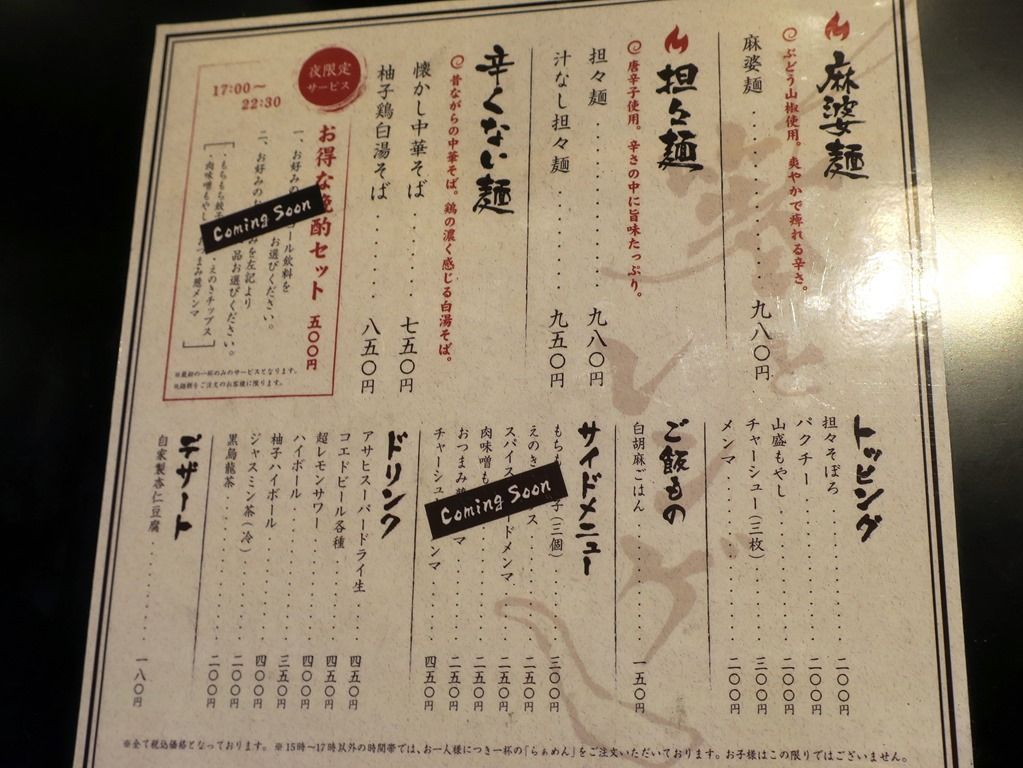 麻婆麺
ぶどう山椒使用。爽やかで痺れる辛さ。
麻婆麺 九八〇円
担々麺
唐辛子使用。辛さの中に旨味たっぷり。
担々麺 九八〇円
汁なし担々麺 九五〇円
辛くない麺
昔ながらの中華そば。鶏の濃く感じる白湯そば。
懐かし中華そば 七五〇円
柚子鶏白湯そば 八五〇円
夜限定
サービス
17:00〜
22:30
お得な晩酌セット 五〇〇円
一、お好みの
ール飲料を
お選びください。
二、お好みのお
みを左記より
品お選びください。
・もちもち餃子
・えのきチップス
・肉味噌もやし
おつまみ麺メンマ
Coming Soon
※最初の一杯のみのサービスとなります。
※麺類をご注文のお客様に限ります。
トッピング
担々そぼろ 二〇〇円
パクチー 二〇〇円
山盛もやし 二〇〇円
チャーシュー(三枚) 三〇〇円
メンマ 二〇〇円
ご飯もの
白胡麻ごはん 一五〇円
サイドメニュー
もちも
子(三個) 三〇〇円
えのき
ス 二五〇円
スパイス
ードメンマ 二五〇円
肉味噌も 二五〇円
おつまみ
マ 二五〇円
チャーシュ
ンマ 四五〇円
Coming Soon
ドリンク
アサヒスーパードライ生 四五〇円
コエドビール各種 四五〇円
超レモンサワー 四〇〇円
ハイボール 三五〇円
柚子ハイボール 四〇〇円
ジャスミン茶(冷) 二〇〇円
黒烏龍茶 二〇〇円
デザート
自家製杏仁豆腐 一八〇円
※全て税込価格となっております。 ※15時〜17時以外の時間帯では、お一人様につき一杯の「らぁめん」をご注文いただいております。お子様はこの限りではございません。